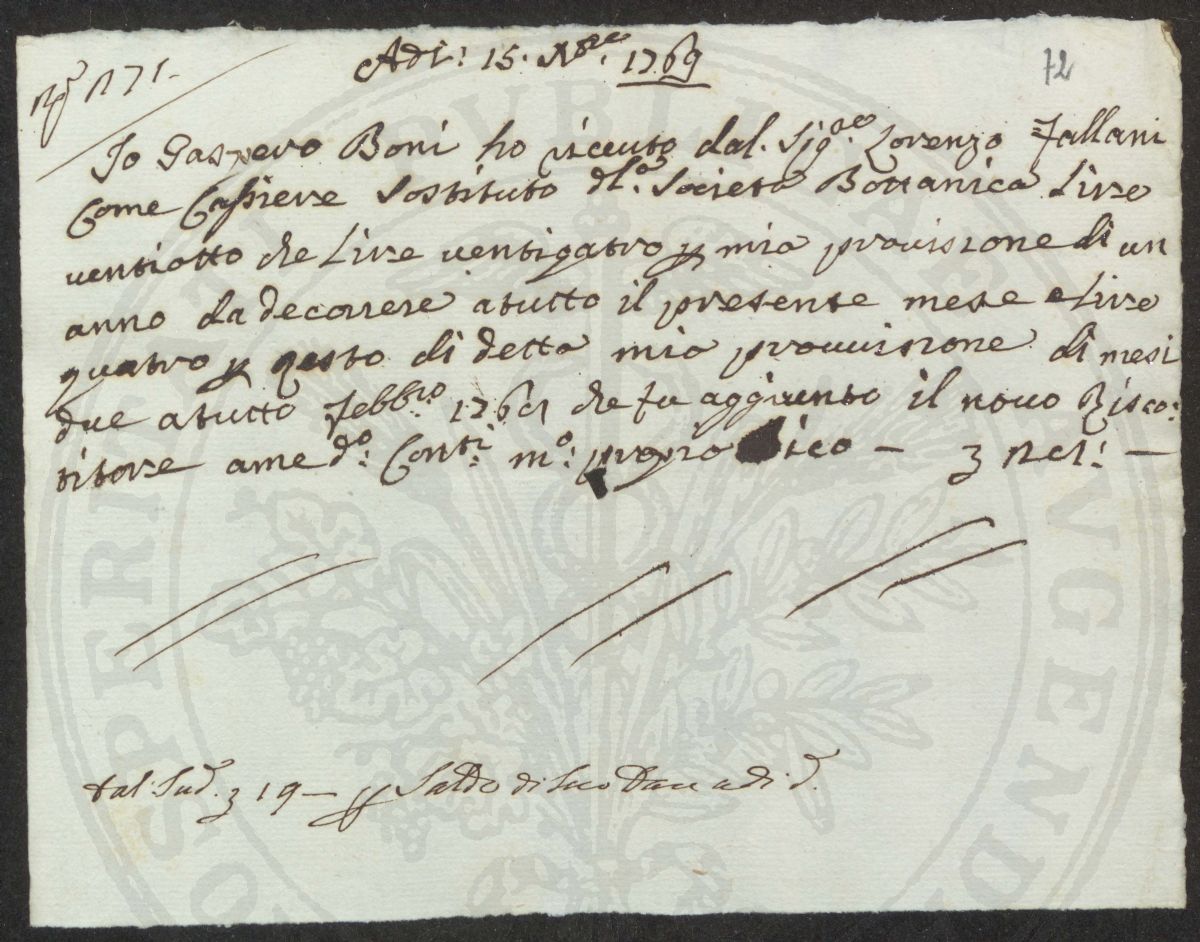 Adi: 15. Xbre. 1769
72
Io Gaspero Boni ho riceuto dal. Sig.re Lorenzo Fallani
Come Cassiere Sostituto dl.a Societa Bottanica Lire
ventiotto che Lire ventiqatro p mia provisione di un
anno da decorrere atutto il presente mese e Lire
quatro p qesto di detta mia provvisione di mesi
due atutto Febb.ro 1769 che fu aggiunto il novo Risco:
titore a me d.o: Cont.i m.o: propio dico —
dal: Sud. 19 — p Saldo di suo Dare adi d.
PUBLICAE
AUGENDAE
PROSPERITATI